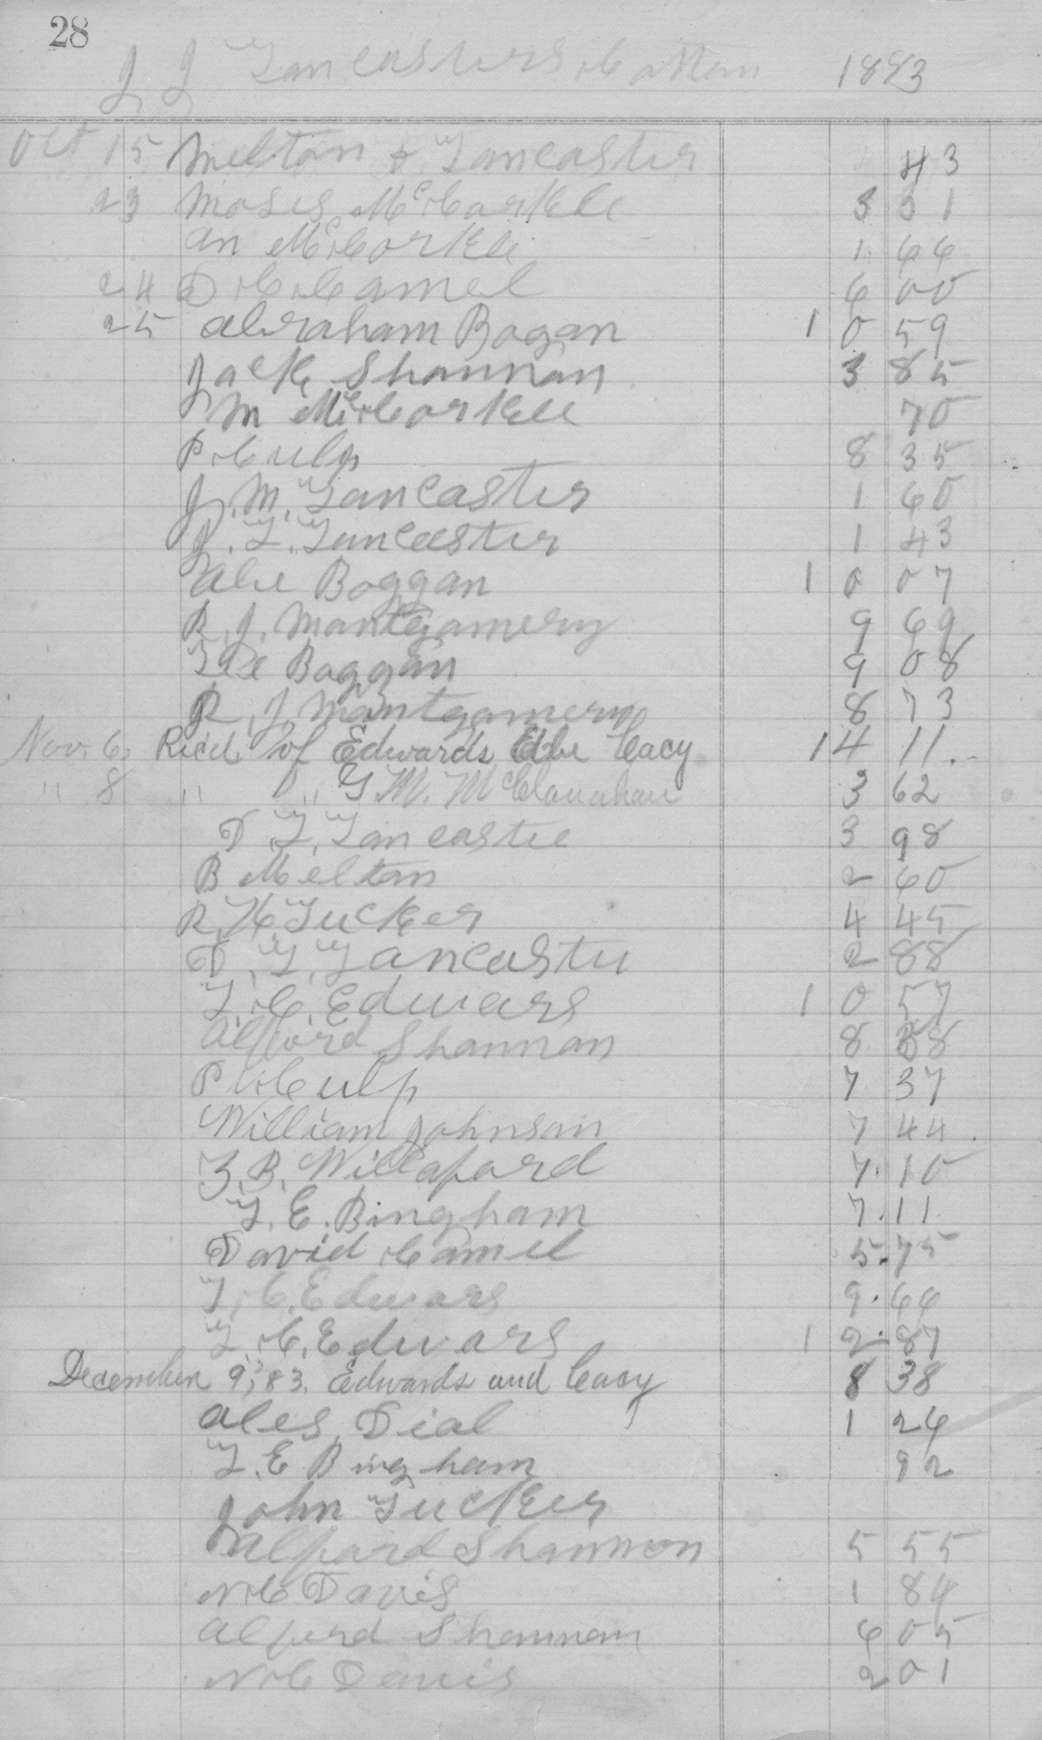 28
J J Lancasters Cotton 1883
Oct 15 Melton & Lancaster 43
23 Moses McCorkle 3 31
An McCorkle 1 66
24 D C Camel 6 00
25 Abraham Bogan 1 0 59
Jack Shannan 3 85
M McCorkle 70
P Culp 8 35
J. M. Lancaster 1 60
J. L. Lancaster 1 43
Abe Boggan 1 0 07
R. J. Montgamery 9 69
Boggan 9 08
R. J. Mantgamery 8 73
Nov. 6, Rec'd of Edwards Cacy 14 11
" 8 " " G M. McClanahan 3 62
D. L. Lancaster 3 98
B Meltan 2 60
R. H. Tucker 4 45
D. L. Lancaster 2 88
T. C. Edwars 1 0 57
Alford Shannan 8 38
P Culp 7 37
William Johnsan 7 44
Z. B. Willaford 7.10
T. E. Bingham 7.11
David Camel 5.75
T. C. Edwars 9.66
T. C. Edwars 1 2.87
December 9, 83. Edwards and Cacy 8 38
Ales Dial 1 26
T. E Bingham 92
John Tucker
Alford Shannon 5 55
N C Davis 1 86
Alford Shannan 6 05
N C Davis 2 01